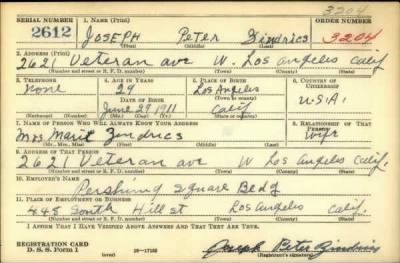 3204
SERIAL NUMBER 1. NAME (Print) ORDER NUMBER
2612 JOSEPH Peter Zindrics 3204
(First) (Middle) (Last)
2. ADDRESS (Print)
2621 Veteran ave W. Los Angeles Calif
(Number and street or R. F. D. number) (Town) (County) (State)
3. TELEPHONE 4. AGE IN YEARS 5. PLACE OF BIRTH 6. COUNTRY OF CITIZENSHIP
None 29 Los Angeles
(Town or county)
DATE OF BIRTH U.S.A.
June 29 1911 Calif
(Exchange) (Number) (Mo.) (Day) (Yr.) (State or country)
7. NAME OF PERSON WHO WILL ALWAYS KNOW YOUR ADDRESS 8. RELATIONSHIP OF THAT PERSON
Mrs Marie Zindrics Wife
(Mr., Mrs., Miss) (First) (Middle) (Last)
9. ADDRESS OF THAT PERSON
2621 Veteran ave W Los Angeles Calif.
(Number and street or R. F. D. number) (Town) (County) (State)
10. EMPLOYER'S NAME
Pershing Square Bldg
11. PLACE OF EMPLOYMENT OR BUSINESS
448 South Hill st Los Angeles Calif.
(Number and street or R. F. D. number) (Town) (County) (State)
I AFFIRM THAT I HAVE VERIFIED ABOVE ANSWERS AND THAT THEY ARE TRUE.
REGISTRATION CARD
D. S. S. Form 1 (over) 16—17105 Joseph Peter Zindrics
(Registrant's signature)